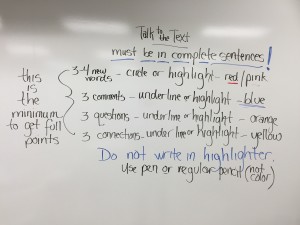 Talk to the Text
must be in complete sentences!
this is the minimum to get full points
3-4 new words - circle or highlight - red/pink
3 comments - underline or highlight - blue
3 questions - underline or highlight - orange
3 connections - underline or highlight - yellow
Do not write in highlighter.
Use pen or regular pencil (not color)